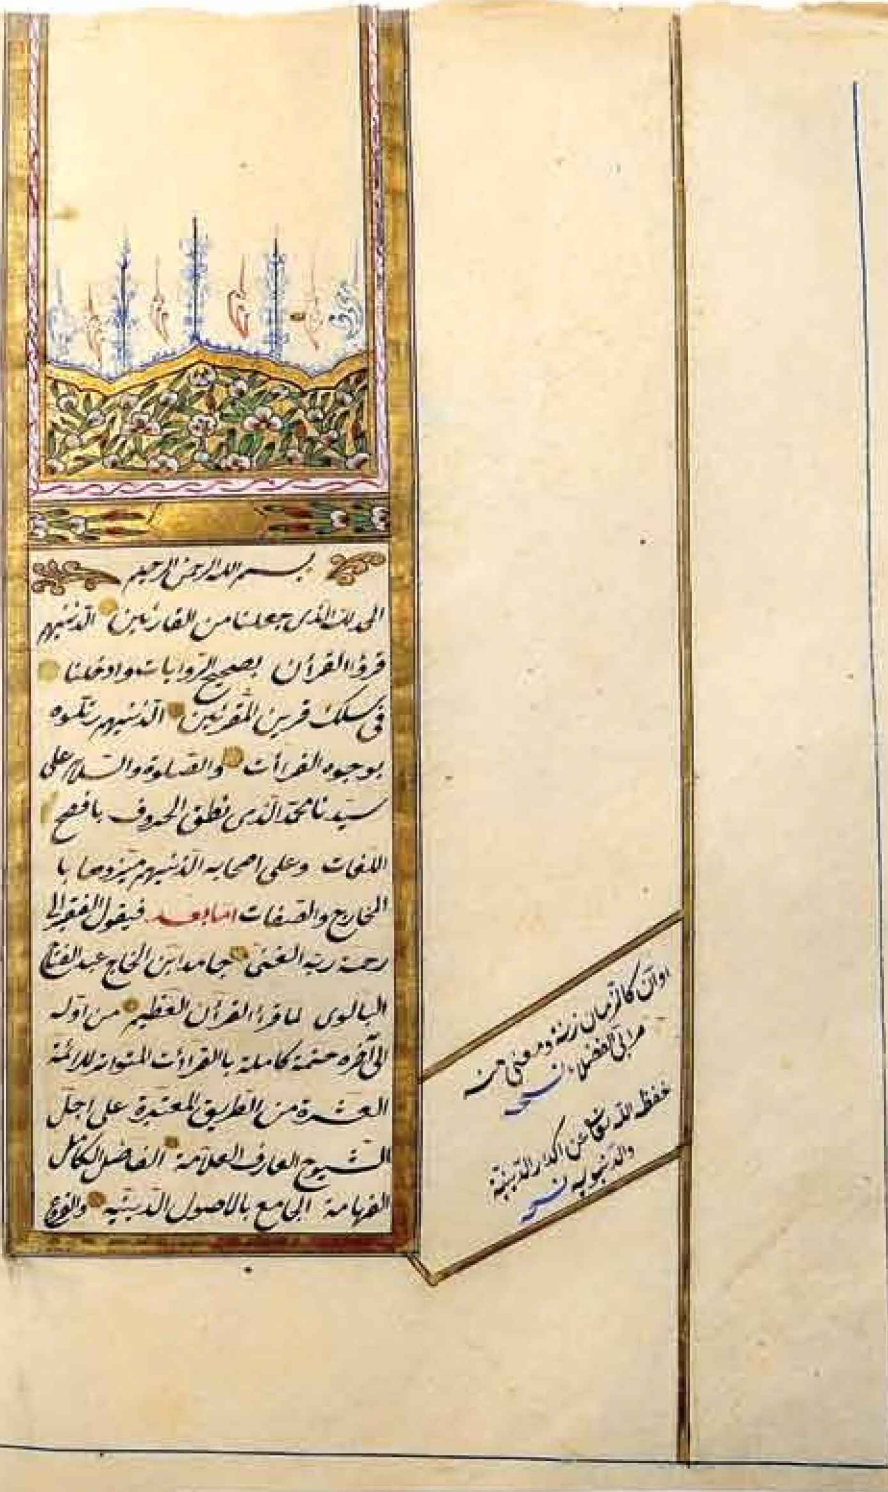 بسم الله الرحمن الرحيم
الحمد لله الذى جعلنا من القارئين الذينهم
قرؤا القرأن بصحيح الروايات وادخلنا
فى سلك قرين المقرئين الذينهم رتلوه
بوجوه القرأت والصلوة والسلام على
سيدنا محمد الذى نطق الحروف بافصح
اللغات وعلى اصحابه الذينهم ميزوها با
لمخارج والصفات اما بعد فيقول الفقير الى
رحمة ربه الغنى حامد ابن الحاج عبد الفتاح
البالوى لما قرأ القرأن العظيم من اوله
الى آخره ختمة كاملة بالقراءات المتواترة للائمة
العشرة من الطريق المعتبرة على اجل
الشيوخ العارف العلامة الفاضل الكامل
الفهامة الجامع بالاصول الدينيه والفروع
اوان كالزمان زنة ومعنى منه
من ابى الفضلاء نسخه
حفظه الله تعالى عن اكدار الدينية
والدنيويه نسخه